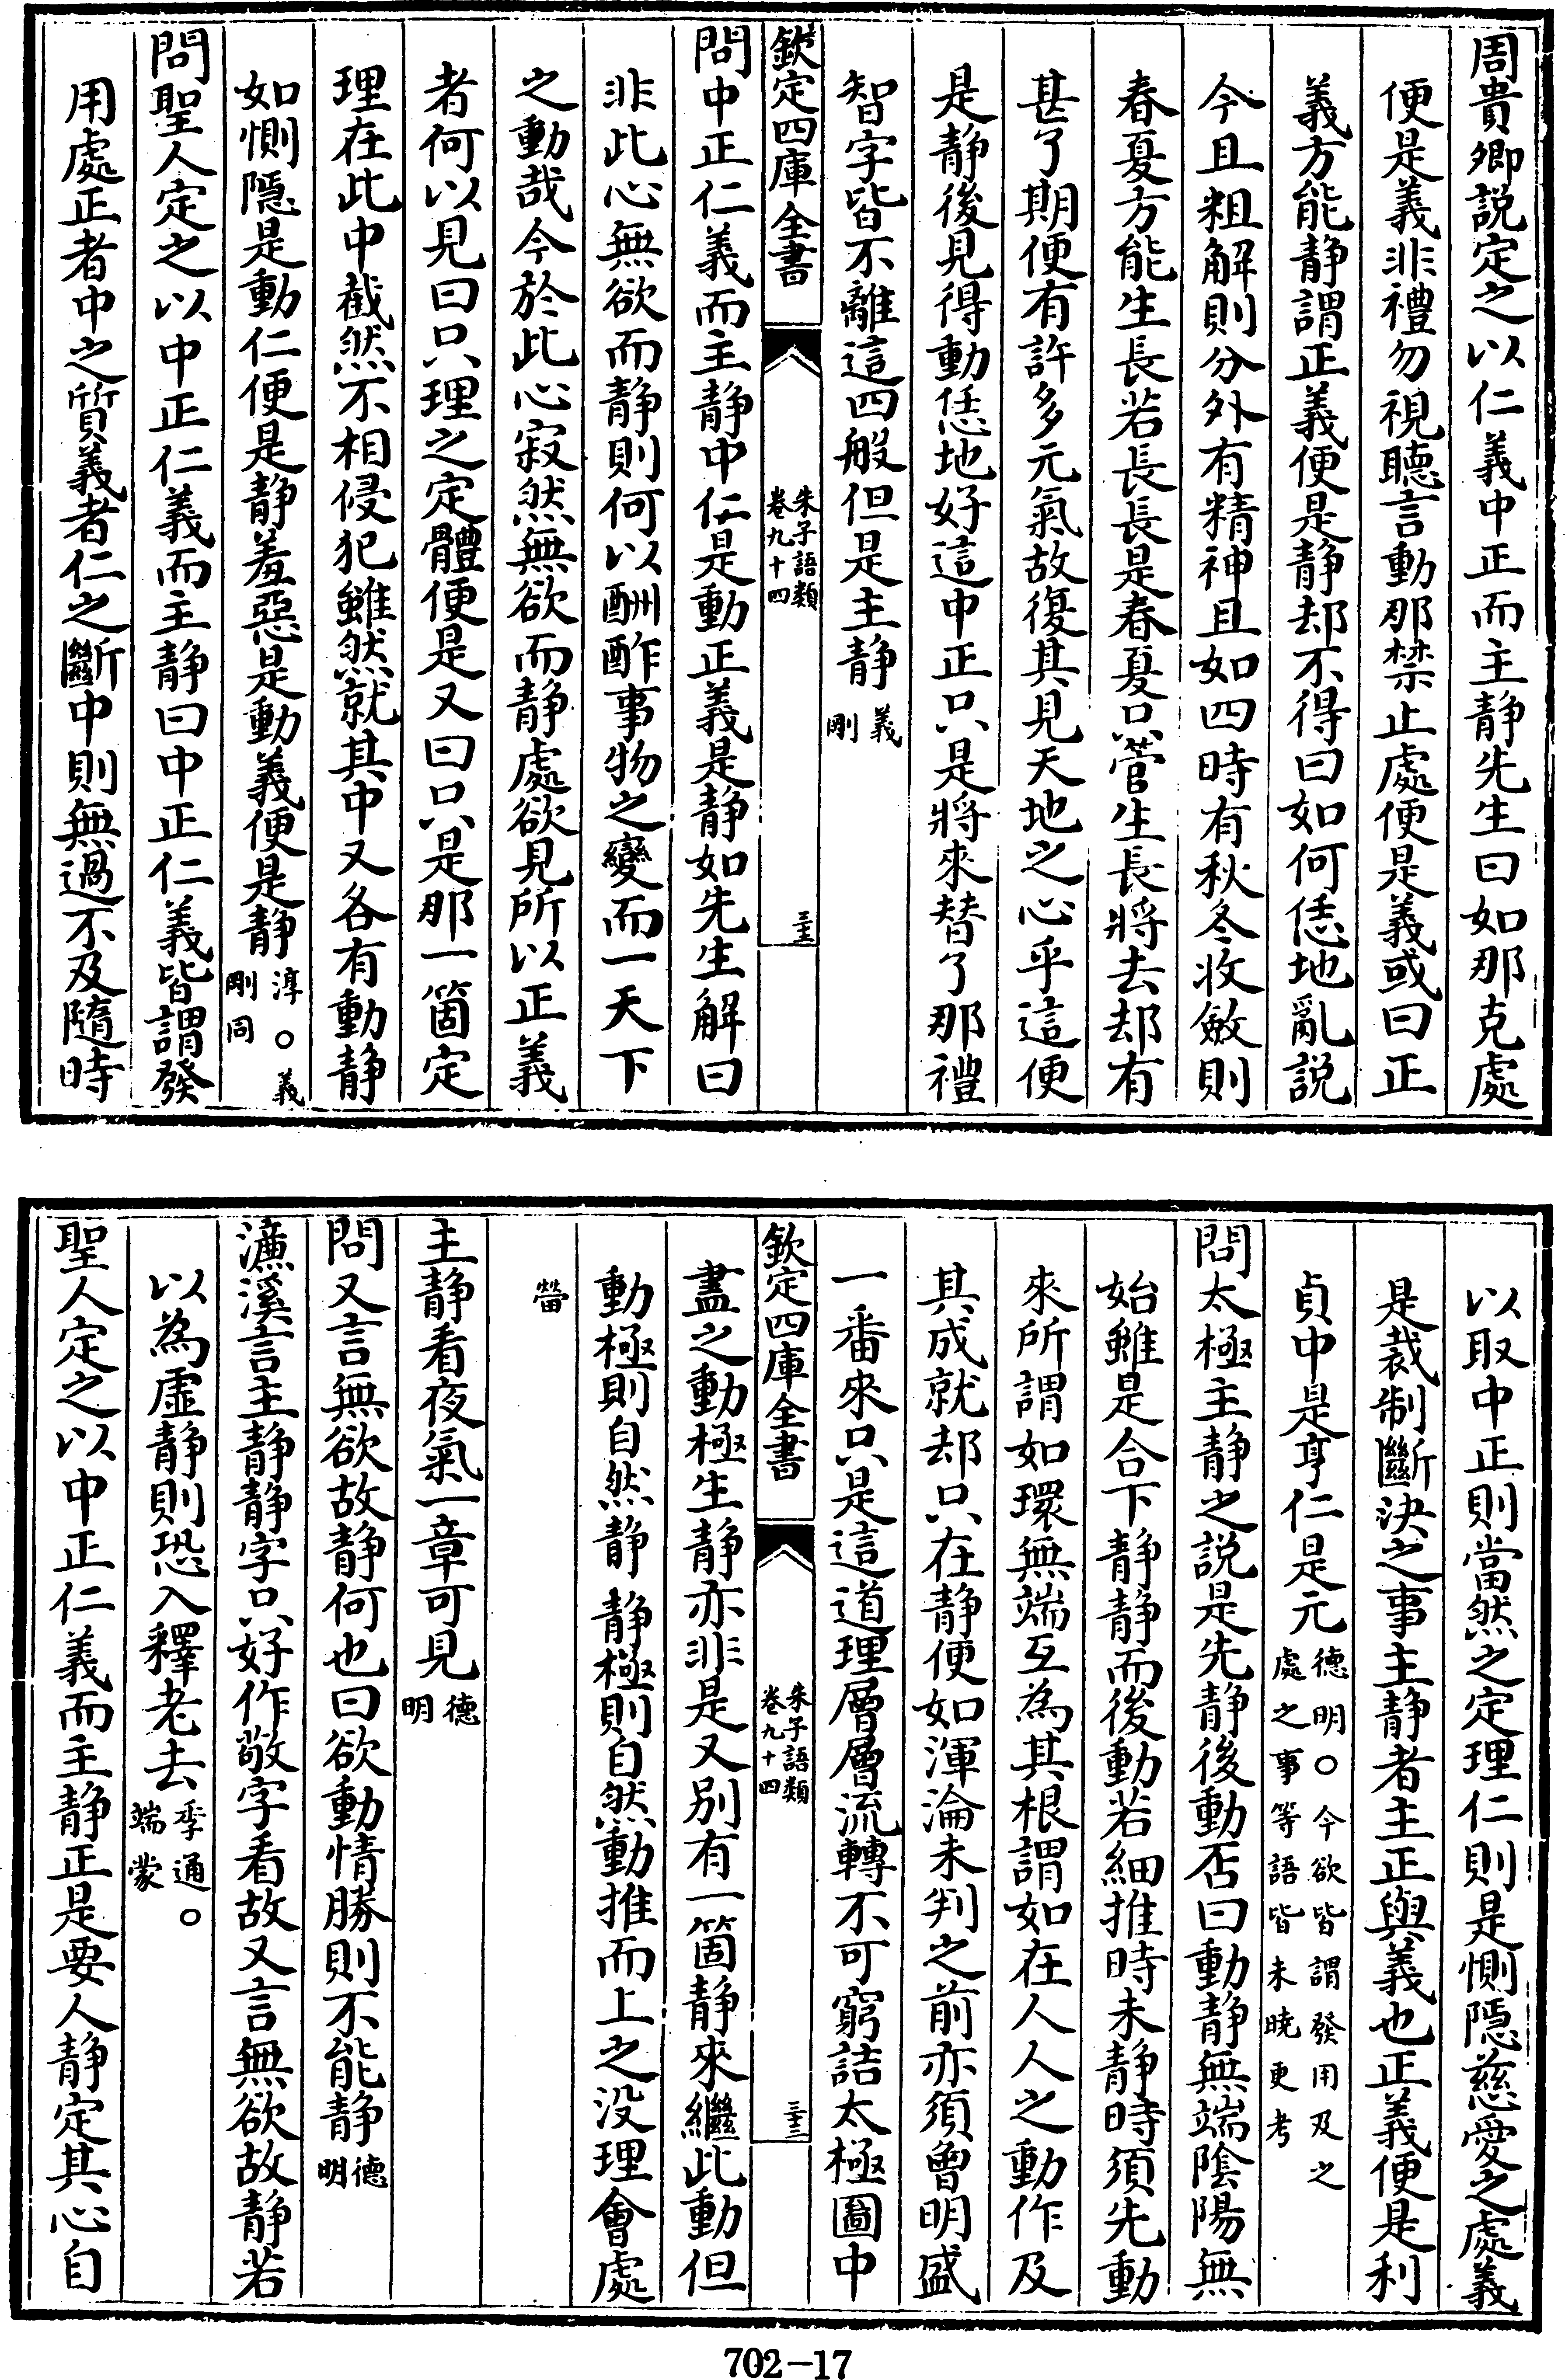 周貴卿説定之以仁義中正而主静先生曰如那克處
便是義非禮勿視聽言動那禁止處便是義或曰正
義方能静謂正義便是静却不得曰如何恁地亂説
今且粗解則分外有精神且如四時有秋冬收斂則
春夏方能生長若長長是春夏只管生長將去却有
甚了期便有許多元氣故復其見天地之心乎這便
是静後見得動恁地好這中正只是將來替了那禮
智字皆不離這四般但是主静義剛
欽定四庫全書
朱子語類
卷九十四
三十二
問中正仁義而主静中仁是動正義是静如先生解曰
非此心無欲而静則何以酬酢事物之變而一天下
之動哉今於此心寂然無欲而静處欲見所以正義
者何以見曰只理之定體便是又曰只是那一箇定
理在此中截然不相侵犯雖然就其中又各有動静
如惻隱是動仁便是静羞惡是動義便是静淳○義剛同
問聖人定之以中正仁義而主静曰中正仁義皆謂發
用處正者中之質義者仁之斷中則無過不及隨時
以取中正則當然之定理仁則是惻隱慈愛之處義
是裁制斷決之事主静者主正與義也正義便是利
貞中是亨仁是元德明○今欲皆謂發用及之處之事等語皆未曉更考
問太極主静之説是先静後動否曰動静無端陰陽無
始雖是合下静静而後動若細推時未静時須先動
來所謂如環無端互為其根謂如在人人之動作及
其成就却只在静便如渾淪未判之前亦須曾明盛
一番來只是這道理層層流轉不可窮詰太極圖中
欽定四庫全書
朱子語類
卷九十四
三十三
盡之動極生静亦非是又别有一箇静來繼此動但
動極則自然静静極則自然動推而上之没理會處
㽦
主静看夜氣一章可見德明
問又言無欲故静何也曰欲動情勝則不能静德明
濓溪言主静静字只好作敬字看故又言無欲故静若
以為虚静則恐入釋老去季通○端蒙
聖人定之以中正仁義而主静正是要人静定其心自
702-17